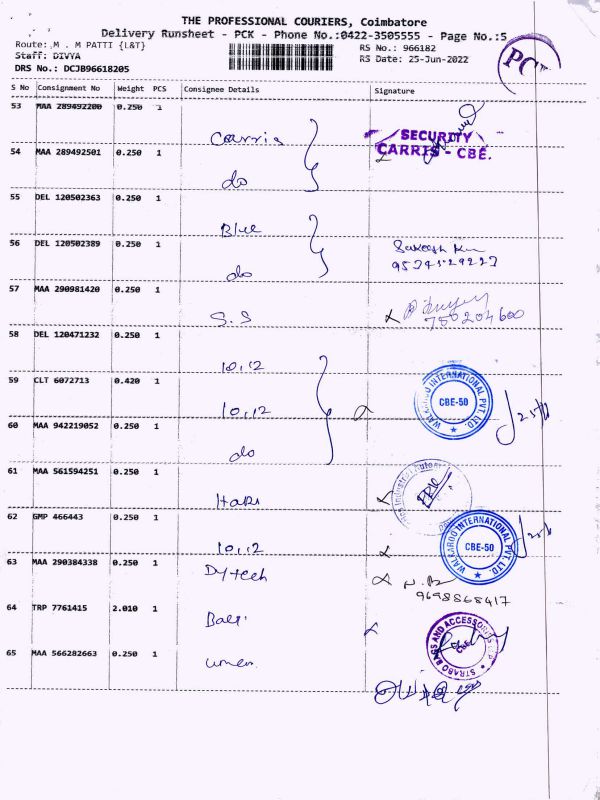 THE PROFESSIONAL COURIERS, Coimbatore
Delivery Runsheet - PCK - Phone No.:0422-3505555 - Page No.:5
Route: M . M PATTI {L&T}
RS No.: 966182
Staff: DIVYA
RS Date: 25-Jun-2022
DRS No.: DCJB96618205
PC
S No Consignment No Weight PCS Consignee Details Signature
53 MAA 289492200 0.250 1
Carris
SECURITY
CARRIS - CBE.
54 MAA 289492501 0.250 1
do
55 DEL 120502363 0.250 1
Blue
56 DEL 120502389 0.250 1
do
57 MAA 290981420 0.250 1
S.S
750204600
58 DEL 120471232 0.250 1
10,12
59 CLT 6072713 0.420 1
10,12
WALKAROO INTERNATIONAL PVT. LTD.
CBE-50
60 MAA 942219052 0.250 1
do
61 MAA 561594251 0.250 1
Hari
62 GMP 466443 0.250 1
10,12
WALKAROO INTERNATIONAL PVT. LTD.
CBE-50
63 MAA 290384338 0.250 1
Dytech
9698868417
64 TRP 7761415 2.010 1
STRABO BAGS AND ACCESSORIES
65 MAA 566282663 0.250 1